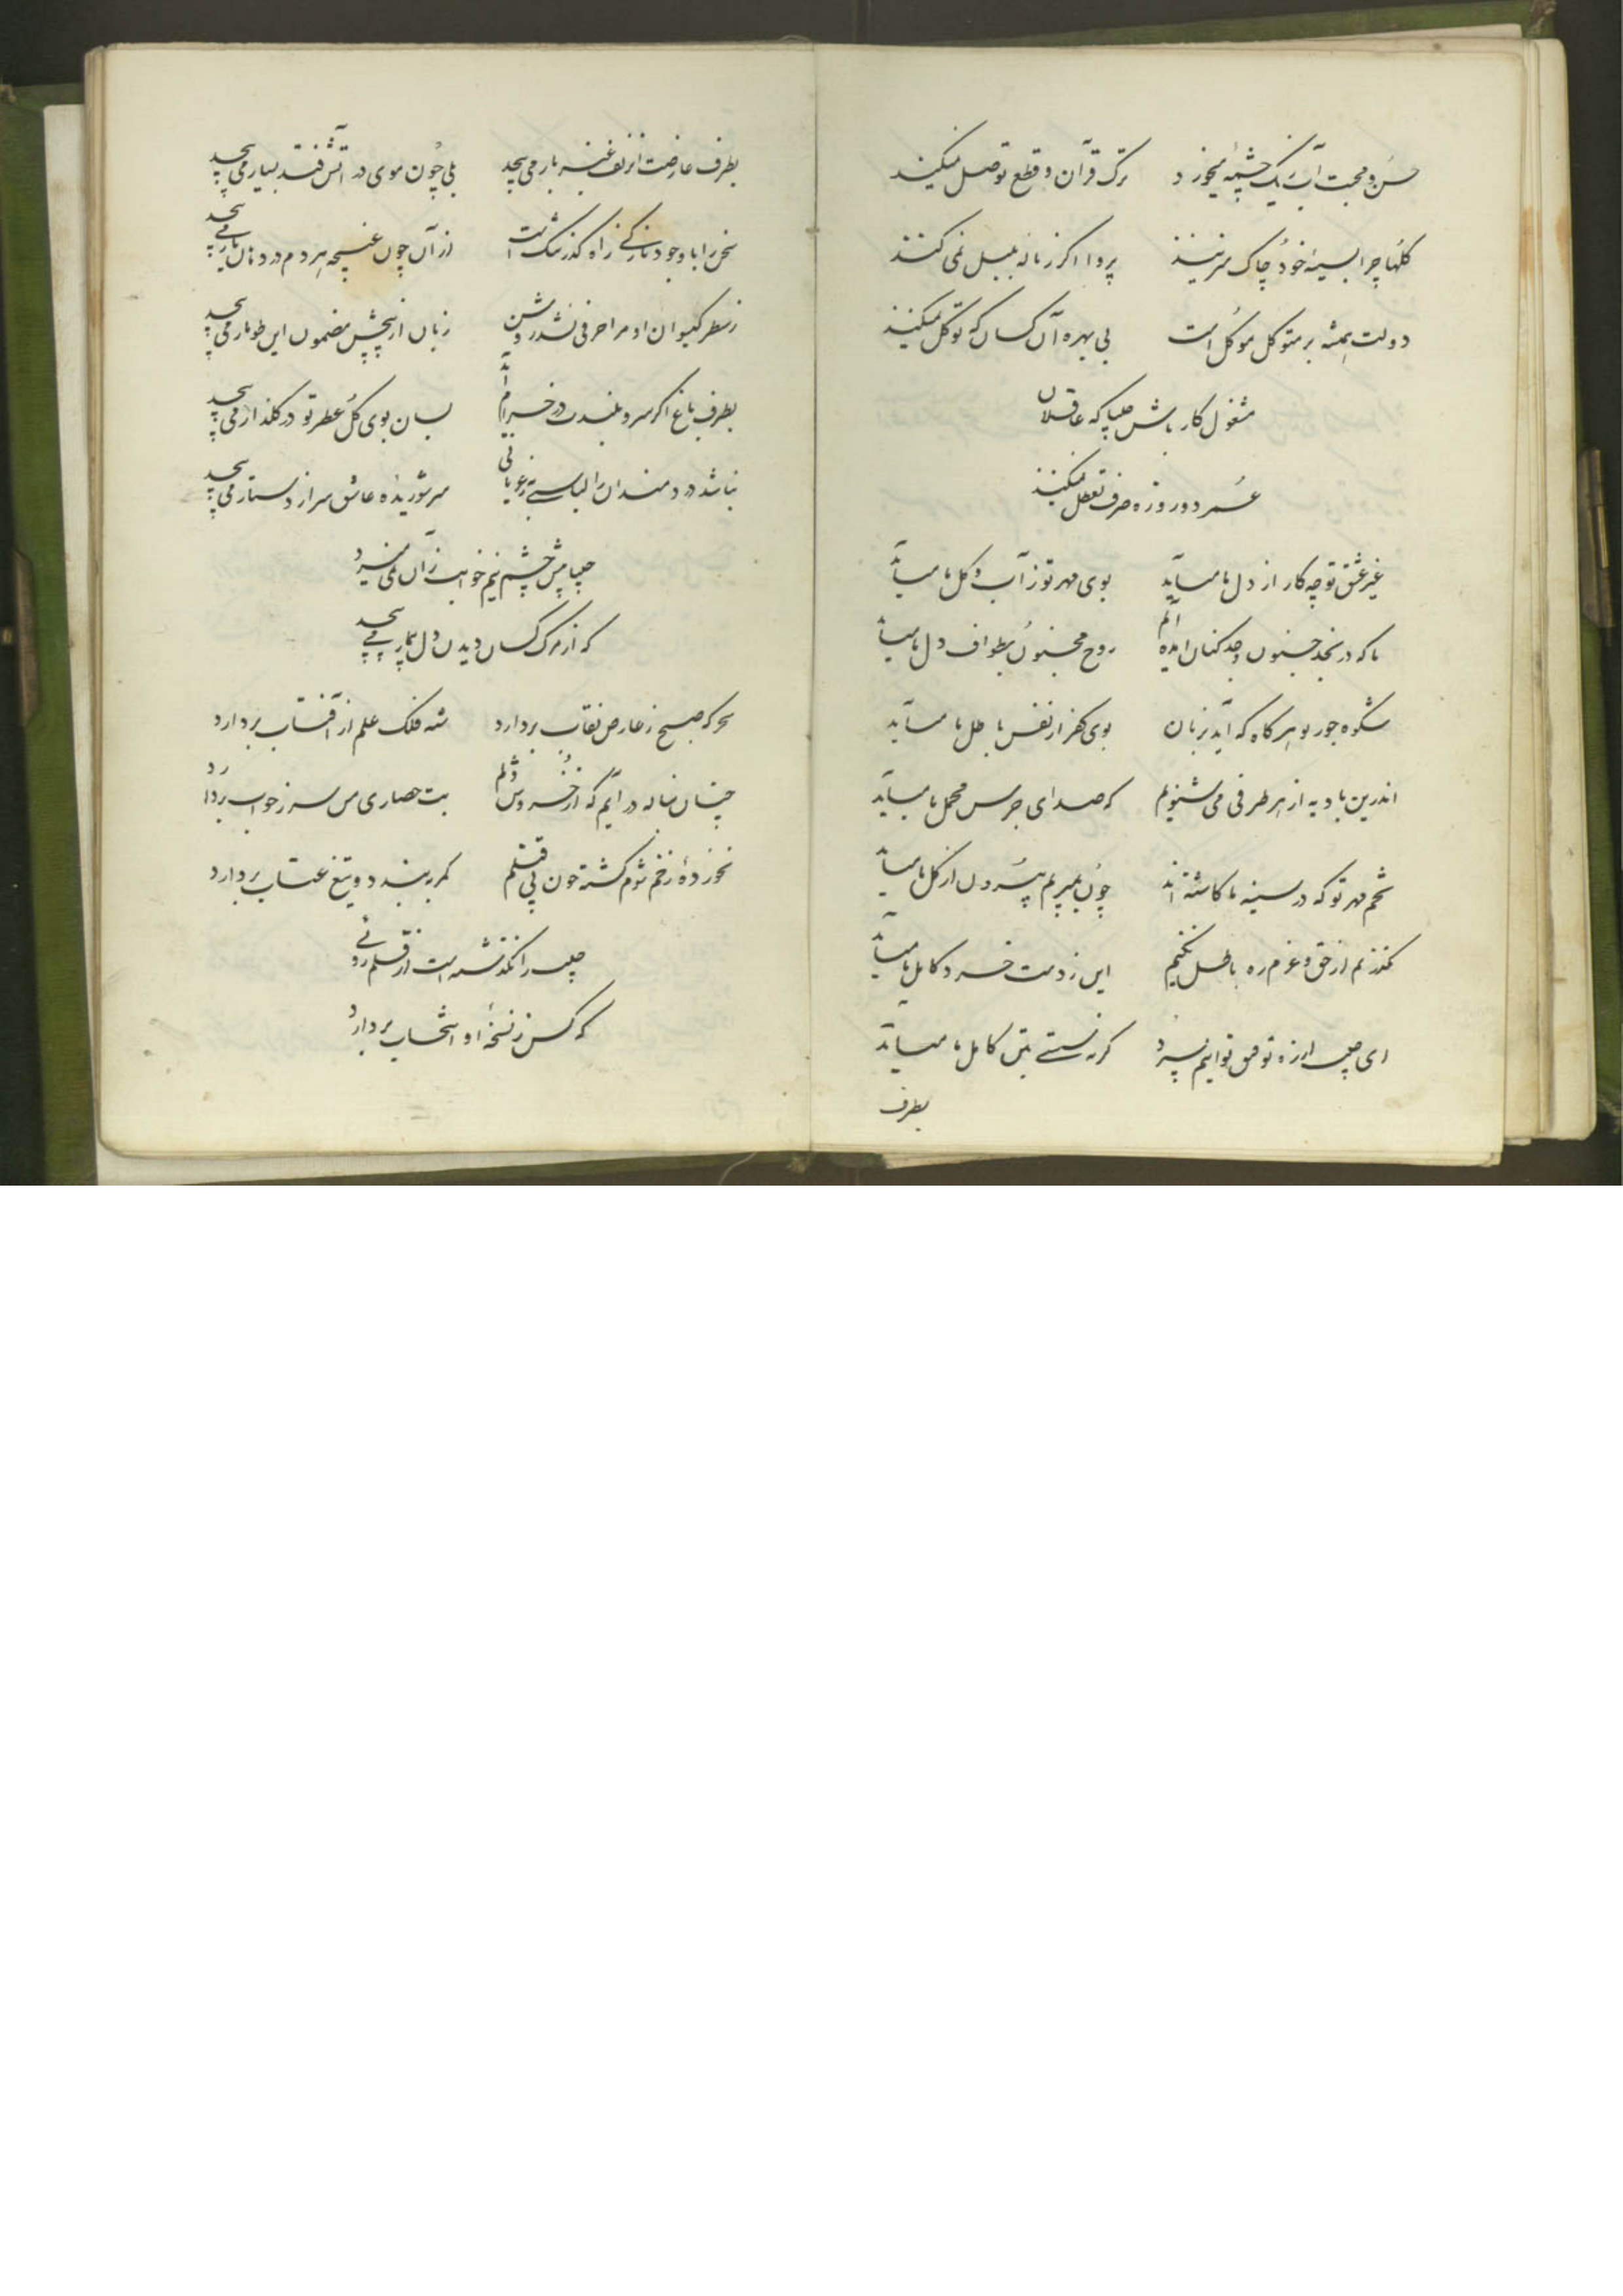 حسن و محبت آب ز یک چشمه میخورد ترک قرآن و قطع توصل میکنند
گلها چرا بسینه خود چاک میزنند پروا اگر ز ناله بلبل نمی کنند
دولت همیشه بر متوکل موکل است بی بهره آن کسان که توکل میکنند
مشغول کار باش حلیما که عاقلان
عمر دو روزه صرف تعطل میکنند
غیر عشق تو چه کار از دل ما میآید بوی مهر تو ز آب و گل ما میآید
ما که در نجد جنون وجد کنان آمده‌ایم روح مجنون بطواف دل ما میآید
شکوه جور تو هر گاه که آید بزبان بوی کفر از نفس باطل ما میآید
اندرین بادیه از هر طرفی می شنوم که صدای جرس محمل ما میآید
تخم مهر تو که در سینه ما کاشته‌اند چون بمیریم برون از گل ما میآید
نگذریم از حق و عزم ره باطل نکنیم این ز دست خرد کامل ما میآید
ای از ره توفیق توانیم سپرد گر نه سستی بتن کامل ما میآید
بطرف
بطرف عارضت از زلف عنبر بار می پیچد بلی چون موی در آتش فتد بسیار می پیچد
سخن را با وجود نازکی راه گذر تنگ است از آن چون غنچه هر دم در دهان یار می پیچد
ز سطر گیسوان او مرا حرفی نشد روشن زبان از پیچش مضمون این طومار می پیچد
بطرف باغ اگر سرو بلندت در خرام آید بسان بوی گل عطر تو در گلزار می پیچد
نباشد دردمندان را لباسی به ز عریانی سر شوریده عاشق سر از دستار می پیچد
پیش چشم نیم خوابت زان نمی میرد
که از مرگ کسان دیدن دل بیمار می پیچد
سحر که صبح ز عارض نقاب بردارد شه فلک علم از آفتاب بردارد
چنان بناله در آیم که از خروش دلم بت حصاری من سر ز خواب بردارد
نخورده زخم شوم کشته چون پی قتلم کمر ببندد و تیغ عتاب بردارد
را نگذشته است از قلم
که کس ز نسخه او انتخاب بردارد